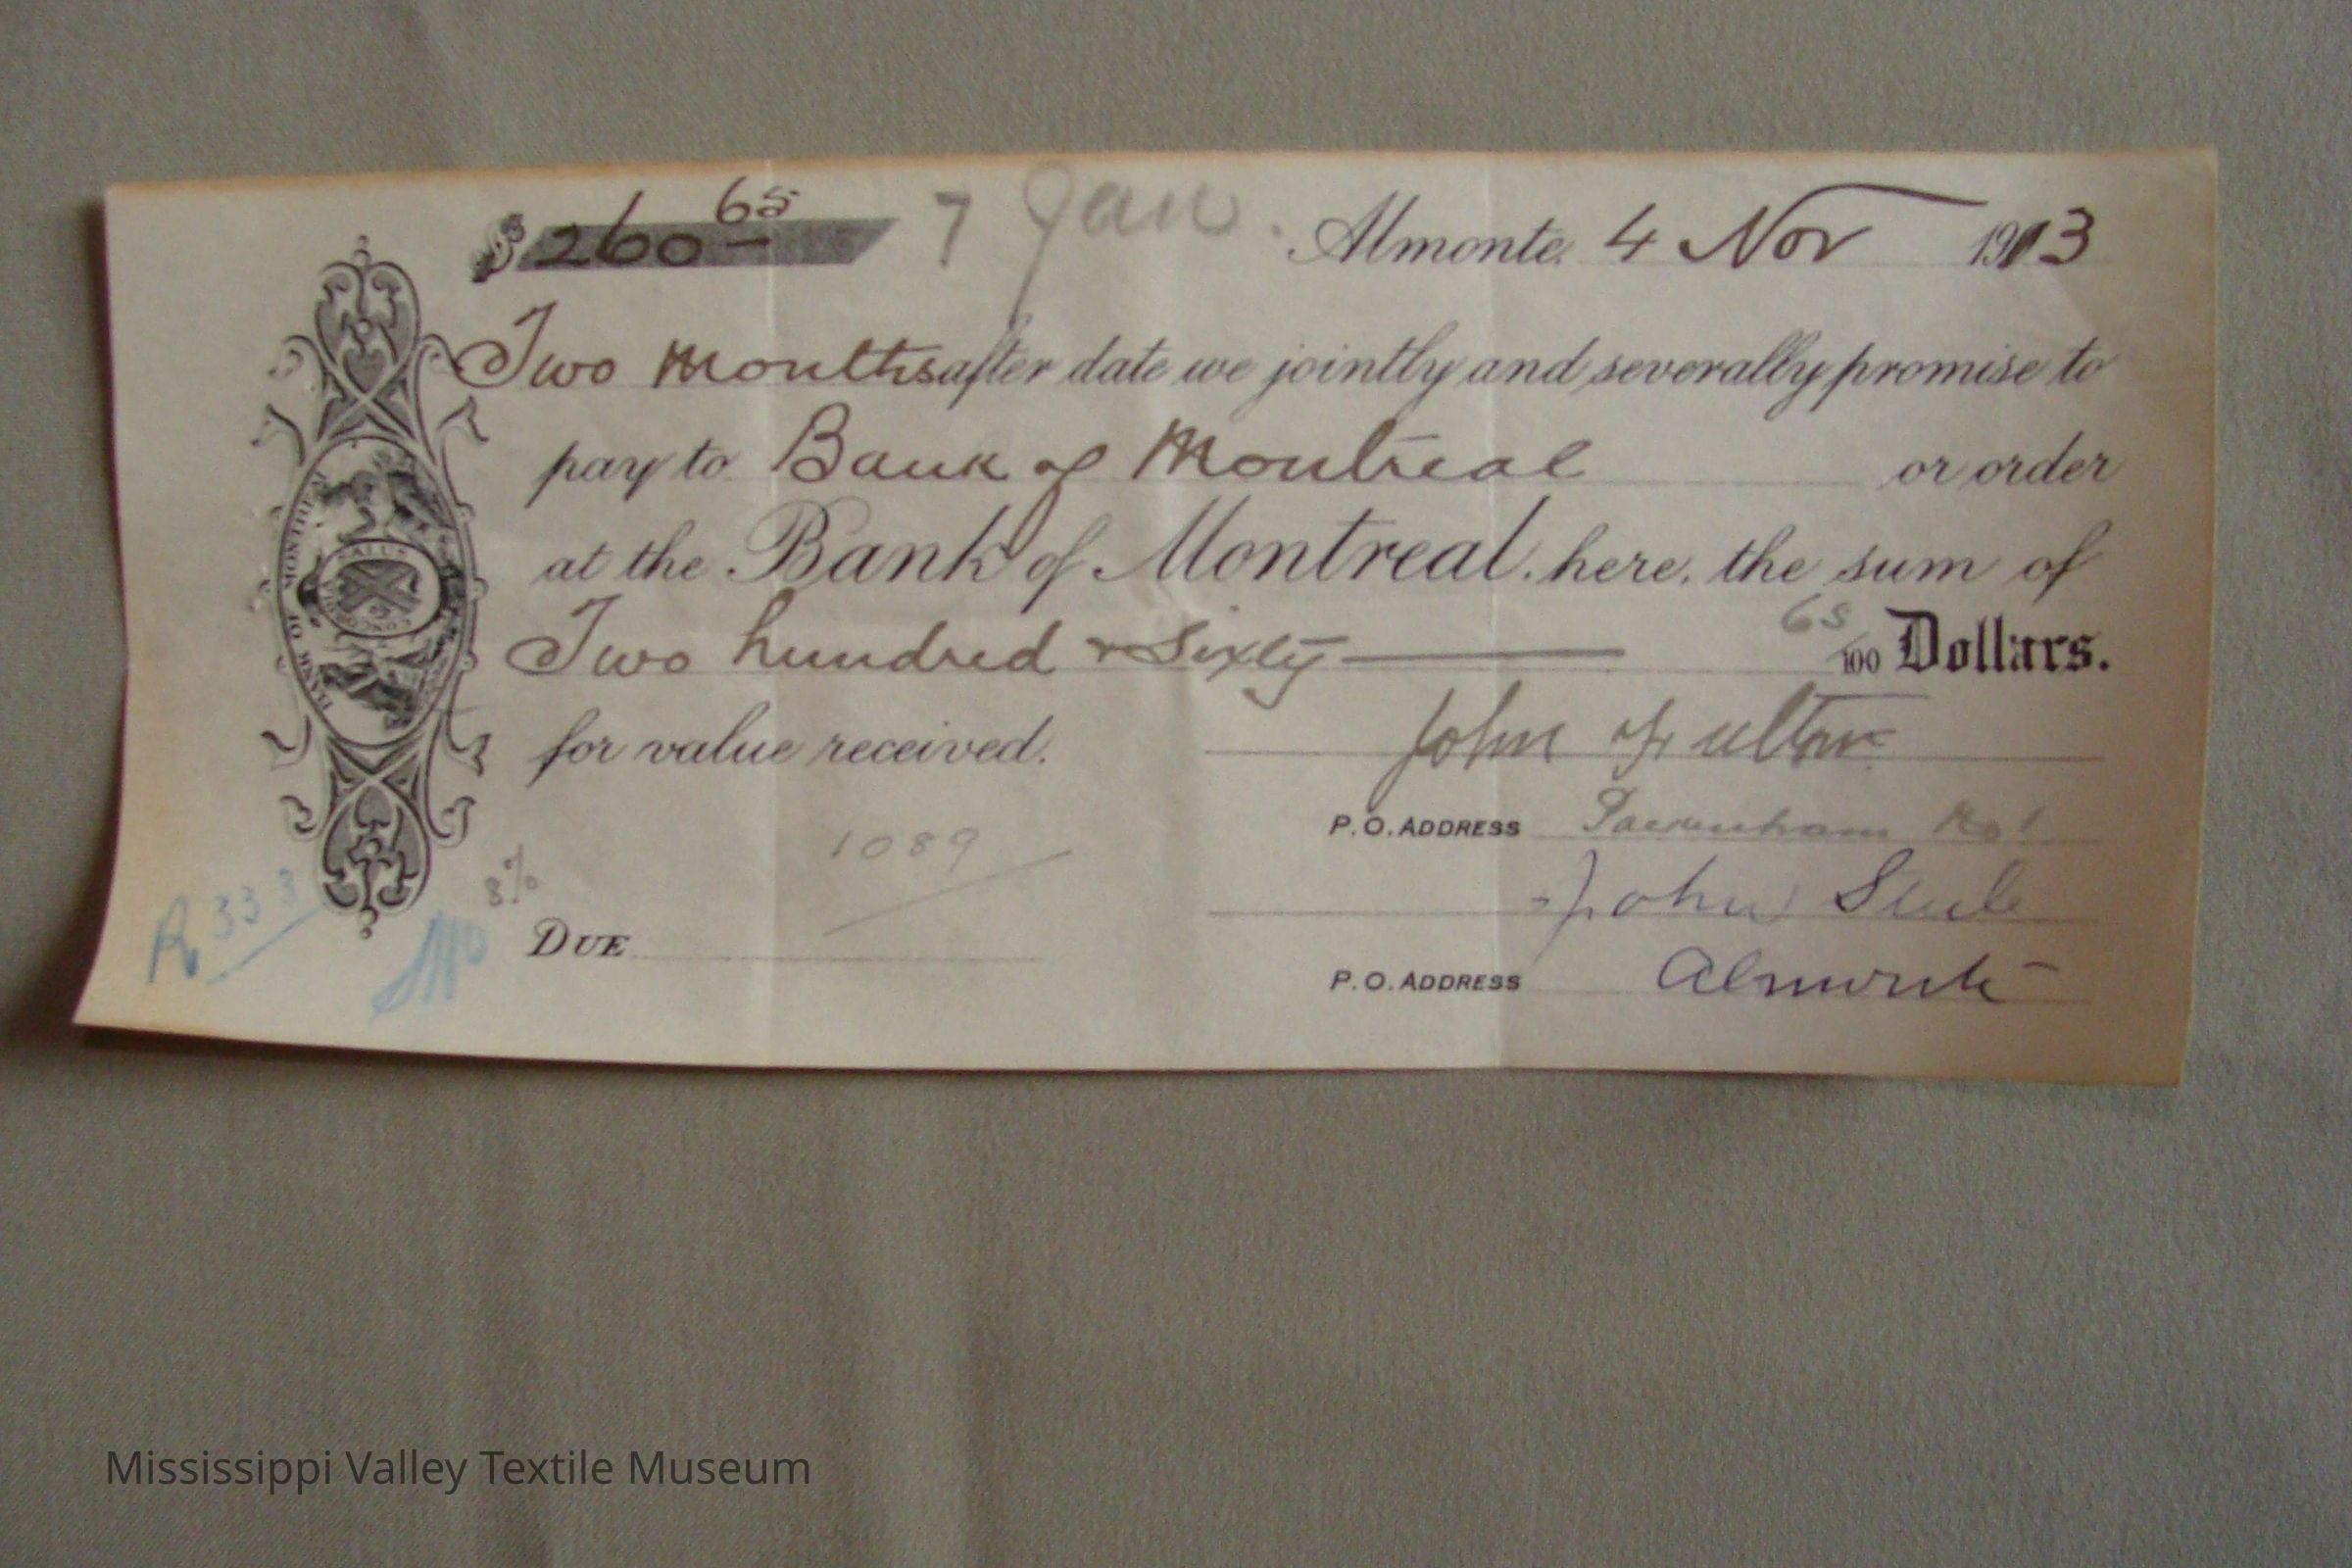 $260 65 7 Jan. Almonte, 4 Nov 1913
Two Months after date we jointly and severally promise to
pay to Bank of Montreal or order
at the Bank of Montreal, here, the sum of
Two hundred & Sixty 65/100 Dollars.
for value received.
John Fulton
P.O. ADDRESS Pakenham No 1
1089
John Steele
8%
R 333
DUE
P.O. ADDRESS Almonte
BANK OF MONTREAL
CONCORDIA SALUS
Mississippi Valley Textile Museum